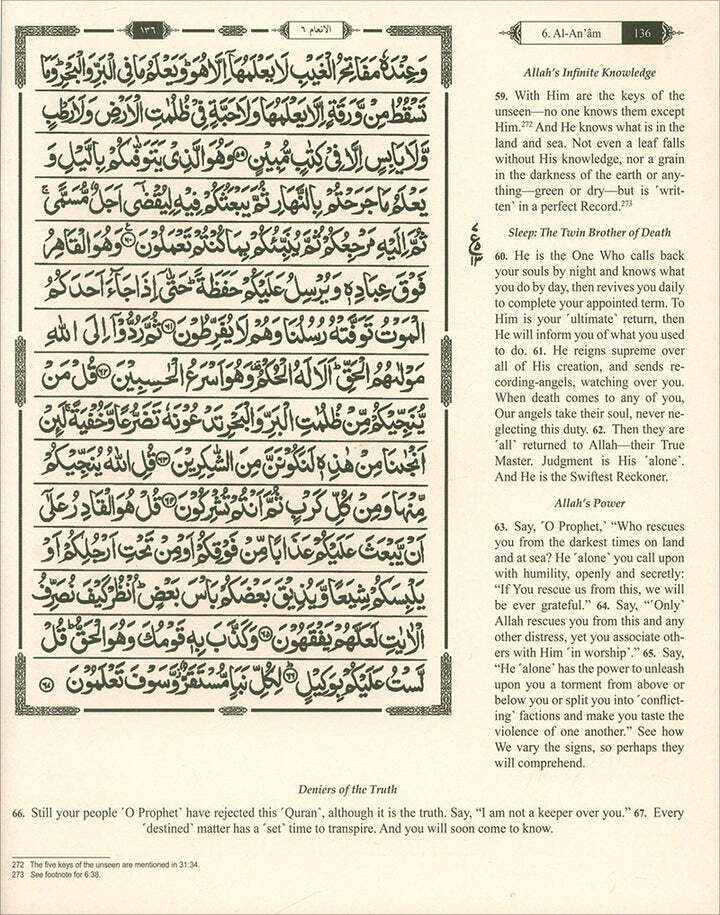 ١٣٦
الانعام ٦
وَعِنْدَهٗ مَفَاتِحُ الْغَيْبِ لَا يَعْلَمُهَاۤ اِلَّا هُوَؕ وَيَعْلَمُ مَا فِى الْبَرِّ وَالْبَحْرِؕ وَمَا
تَسْقُطُ مِنْ وَّرَقَةٍ اِلَّا يَعْلَمُهَا وَلَا حَبَّةٍ فِىْ ظُلُمٰتِ الْاَرْضِ وَلَا رَطْبٍ
وَّلَا يَابِسٍ اِلَّا فِىْ كِتٰبٍ مُّبِيْنٍ ﴿٥٩﴾ وَهُوَ الَّذِىْ يَتَوَفّٰٮكُمْ بِالَّيْلِ وَ
يَعْلَمُ مَا جَرَحْتُمْ بِالنَّهَارِ ثُمَّ يَبْعَثُكُمْ فِيْهِ لِيُقْضٰٓى اَجَلٌ مُّسَمًّىۚ
ثُمَّ اِلَيْهِ مَرْجِعُكُمْ ثُمَّ يُنَبِّئُكُمْ بِمَا كُنْتُمْ تَعْمَلُوْنَ ﴿٦٠﴾ وَهُوَ الْقَاهِرُ
فَوْقَ عِبَادِهٖ وَيُرْسِلُ عَلَيْكُمْ حَفَظَةًؕ حَتّٰٓى اِذَا جَآءَ اَحَدَكُمُ
الْمَوْتُ تَوَفَّتْهُ رُسُلُنَا وَهُمْ لَا يُفَرِّطُوْنَ ﴿٦١﴾ ثُمَّ رُدُّوْۤا اِلَى اللّٰهِ
مَوْلٰٮهُمُ الْحَقِّؕ اَلَا لَهُ الْحُكْمُ وَهُوَ اَسْرَعُ الْحٰسِبِيْنَ ﴿٦٢﴾ قُلْ مَنْ
يُّنَجِّيْكُمْ مِّنْ ظُلُمٰتِ الْبَرِّ وَالْبَحْرِ تَدْعُوْنَهٗ تَضَرُّعًا وَّخُفْيَةًۚ لَئِنْ
اَنْجٰٮنَا مِنْ هٰذِهٖ لَنَكُوْنَنَّ مِنَ الشّٰكِرِيْنَ ﴿٦٣﴾ قُلِ اللّٰهُ يُنَجِّيْكُمْ
مِّنْهَا وَمِنْ كُلِّ كَرْبٍ ثُمَّ اَنْتُمْ تُشْرِكُوْنَ ﴿٦٤﴾ قُلْ هُوَ الْقَادِرُ عَلٰٓى
اَنْ يَّبْعَثَ عَلَيْكُمْ عَذَابًا مِّنْ فَوْقِكُمْ اَوْ مِنْ تَحْتِ اَرْجُلِكُمْ اَوْ
يَلْبِسَكُمْ شِيَعًا وَّيُذِيْقَ بَعْضَكُمْ بَاْسَ بَعْضٍؕ اُنْظُرْ كَيْفَ نُصَرِّفُ
الْاٰيٰتِ لَعَلَّهُمْ يَفْقَهُوْنَ ﴿٦٥﴾ وَكَذَّبَ بِهٖ قَوْمُكَ وَهُوَ الْحَقُّؕ قُلْ
لَّسْتُ عَلَيْكُمْ بِوَكِيْلٍؕ ﴿٦٦﴾ لِكُلِّ نَبَاٍ مُّسْتَقَرٌّ وَّسَوْفَ تَعْلَمُوْنَ ﴿٦٧﴾
6. Al-An'âm 136
Allah's Infinite Knowledge
59. With Him are the keys of the
unseen—no one knows them except
Him.²⁷² And He knows what is in the
land and sea. Not even a leaf falls
without His knowledge, nor a grain
in the darkness of the earth or any-
thing—green or dry—but is ˹writ-
ten˺ in a perfect Record.²⁷³
Sleep: The Twin Brother of Death
60. He is the One Who calls back
your souls by night and knows what
you do by day, then revives you daily
to complete your appointed term. To
Him is your ˹ultimate˺ return, then
He will inform you of what you used
to do. 61. He reigns supreme over
all of His creation, and sends re-
cording-angels, watching over you.
When death comes to any of you,
Our angels take their soul, never ne-
glecting this duty. 62. Then they are
˹all˺ returned to Allah—their True
Master. Judgment is His ˹alone˺.
And He is the Swiftest Reckoner.
Allah's Power
63. Say, ˹O Prophet,˺ “Who rescues
you from the darkest times on land
and at sea? He ˹alone˺ you call upon
with humility, openly and secretly:
“If You rescue us from this, we will
be ever grateful.” 64. Say, “˹Only˺
Allah rescues you from this and any
other distress, yet you associate oth-
ers with Him ˹in worship˺.” 65. Say,
“He ˹alone˺ has the power to unleash
upon you a torment from above or
below you or split you into ˹conflict-
ing˺ factions and make you taste the
violence of one another.” See how
We vary the signs, so perhaps they
will comprehend.
Deniers of the Truth
66. Still your people ˹O Prophet˺ have rejected this ˹Quran˺, although it is the truth. Say, “I am not a keeper over you.” 67. Every
˹destined˺ matter has a ˹set˺ time to transpire. And you will soon come to know.
272 The five keys of the unseen are mentioned in 31:34.
273 See footnote for 6:38.